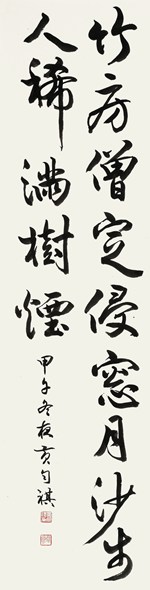 竹房僧定侵窓月沙步
人稀滿樹煙
甲午冬夜黃勻祺